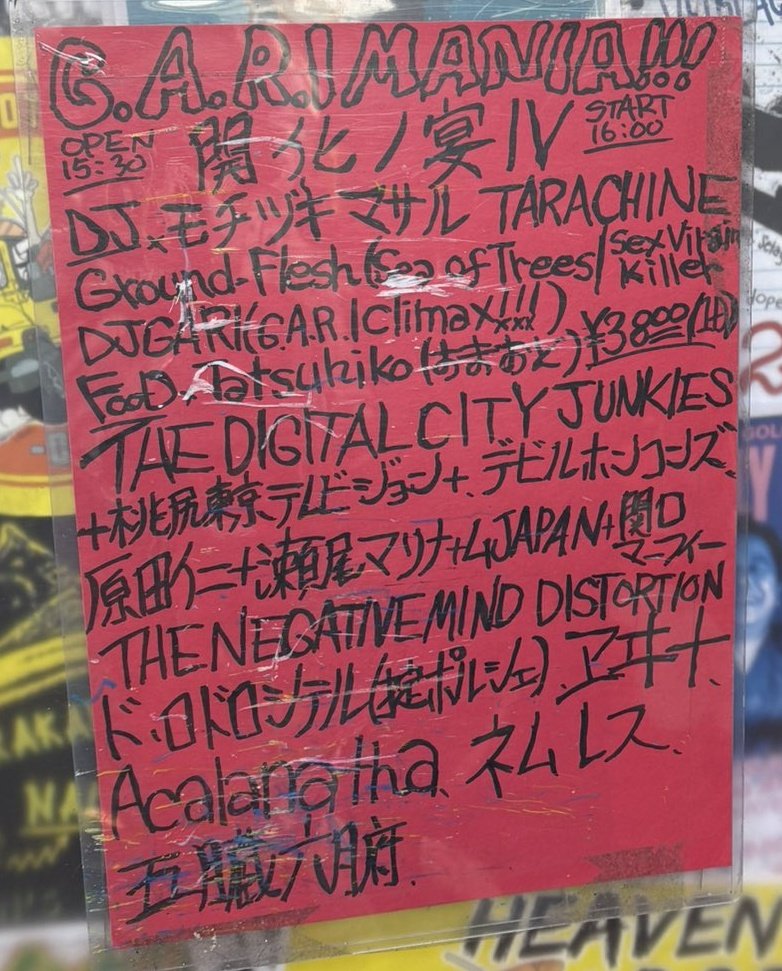 G.A.R.I MANIA!!!
OPEN 15:30 開化ノ宴 IV START 16:00
DJ、モチヅキマサル TARACHINE
Ground-Flesh (Sea of Trees/Sex Virgin Killer
DJ GARI(G.A.R.I Climax!!!xxx) ¥3800
FOOD、Matsuhiko(おまあと)
THE DIGITAL CITY JUNKIES
+桃尻東京テレビジョン+、デビルホンコンズ、
原田仁+瀬尾マリナ+ムJAPAN+関口マーフィー
THE NEGATIVE MIND DISTORTION
ド・ロドロシテル(掟ポルシェ)、ヱヰ十、
Acalanatha、ネムレス、
五臓六腑、
HEAVEN